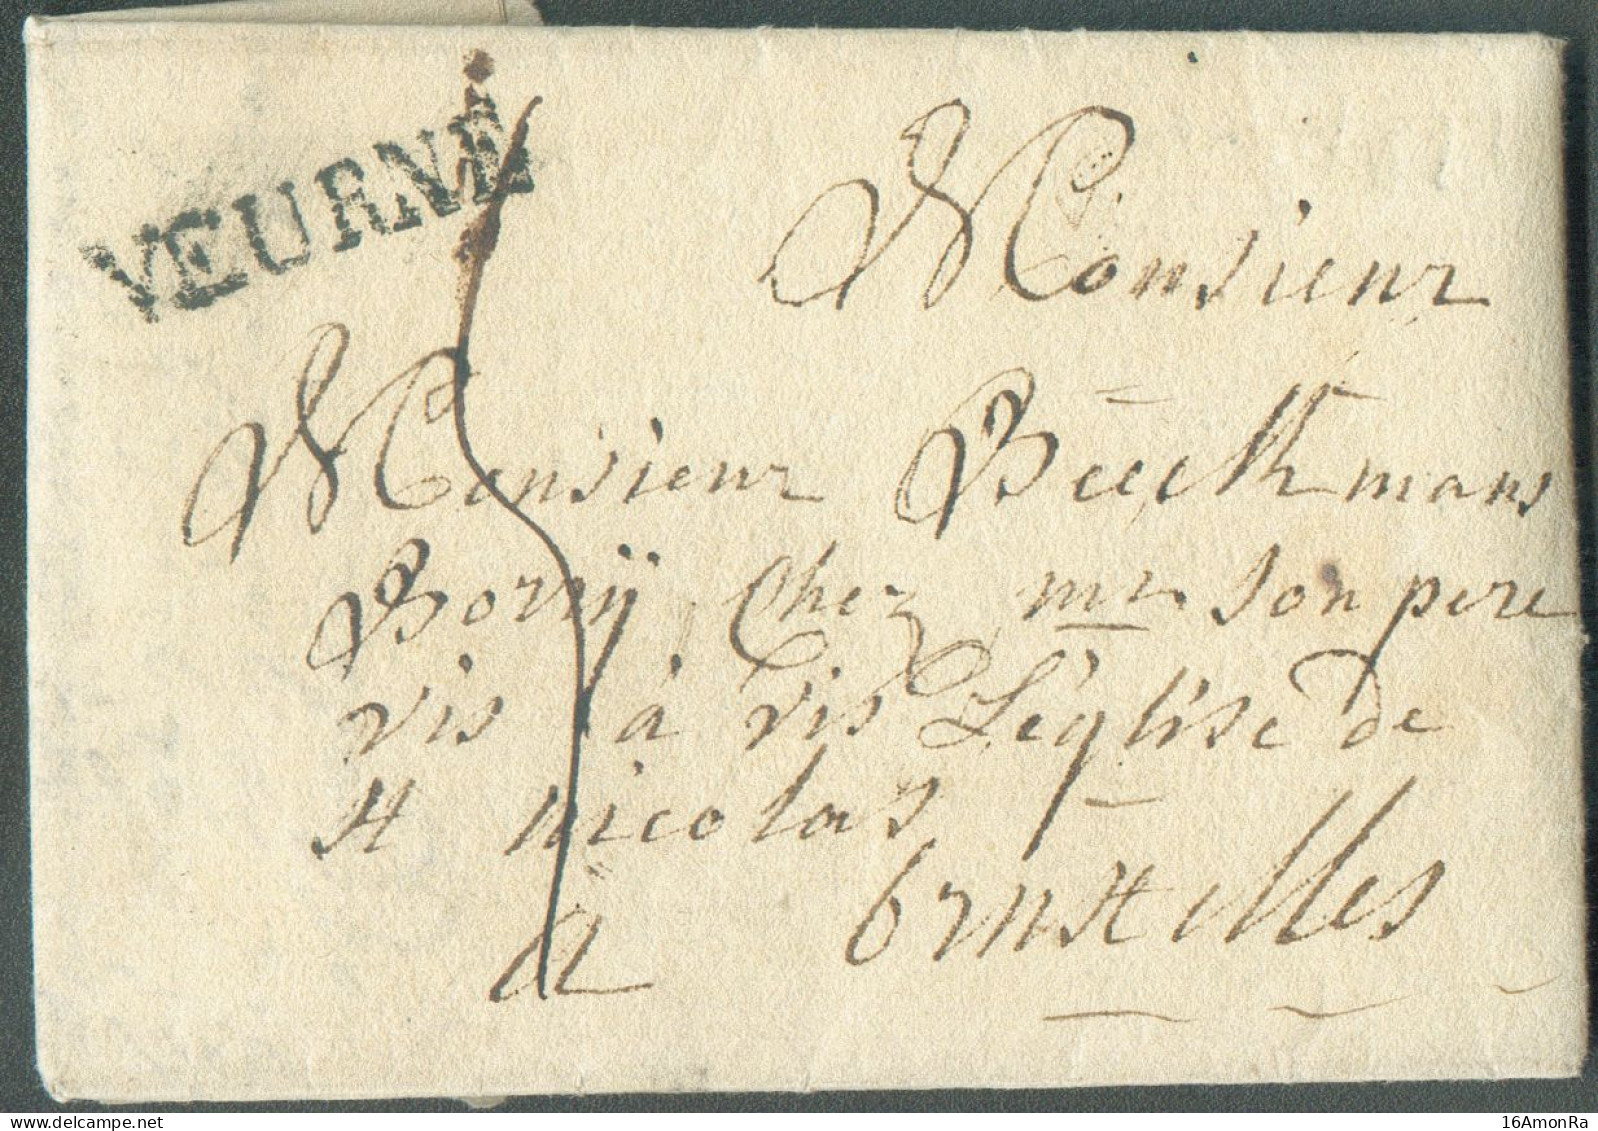 VEURNE
Monsieur
Monsieur
Borrij chez mr son pere
vis à vis L'église de
st nicolas
a bruxelles
16AmonRa